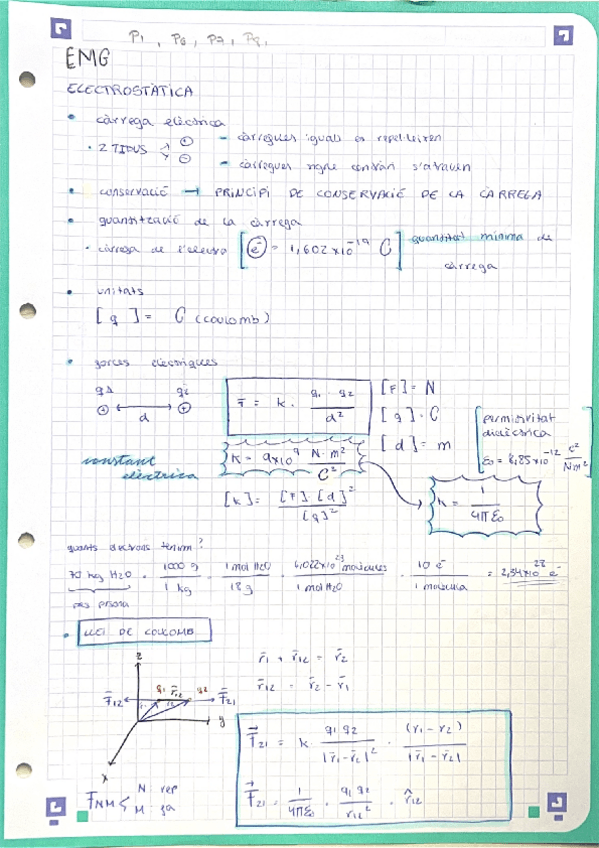 P1, P6, P7, P9,
EMG
ELECTROSTÀTICA
• càrrega elèctrica
· 2 TIPUS + − - càrregues iguals es repel·leixen
- càrregues signe contrari s'atrauen
• conservació → PRINCIPI DE CONSERVACIÓ DE LA CÀRREGA
• quantització de la càrrega
· càrrega de l'electró [e⁻ = 1,602 x10⁻¹⁹ C] quantitat mínima de càrrega
• unitats
[q] = C (coulomb)
• forces elèctriques
q1 q2
d
F = k · q1 · q2 / d²
[F] = N
[q] = C
[d] = m
permitivitat dielèctrica
ε0 = 8,85x10⁻¹² C²/Nm²
constant elèctrica
K = 9x10⁹ N·m²/C²
k = 1/4πε0
[k] = [F]·[d]²/[q]²
quants electrons tenim?
70 kg H2O · 1000 g/1 kg · 1 mol H2O/18 g · 6,022x10²³ molècules/1 mol H2O · 10 e⁻/1 molècula = 2,34x10²⁸ e⁻
pes persona
• LLEI DE COULOMB
z
F12 q1 r12 q2 F21
y
x
r1 + r12 = r2
r12 = r2 - r1
F21 = k · q1 q2/|r1-r2|² · (r1-r2)/|r1-r2|
F21 = 1/4πε0 · q1 q2/r12² · r̂12
FNM N: rep
M: fa